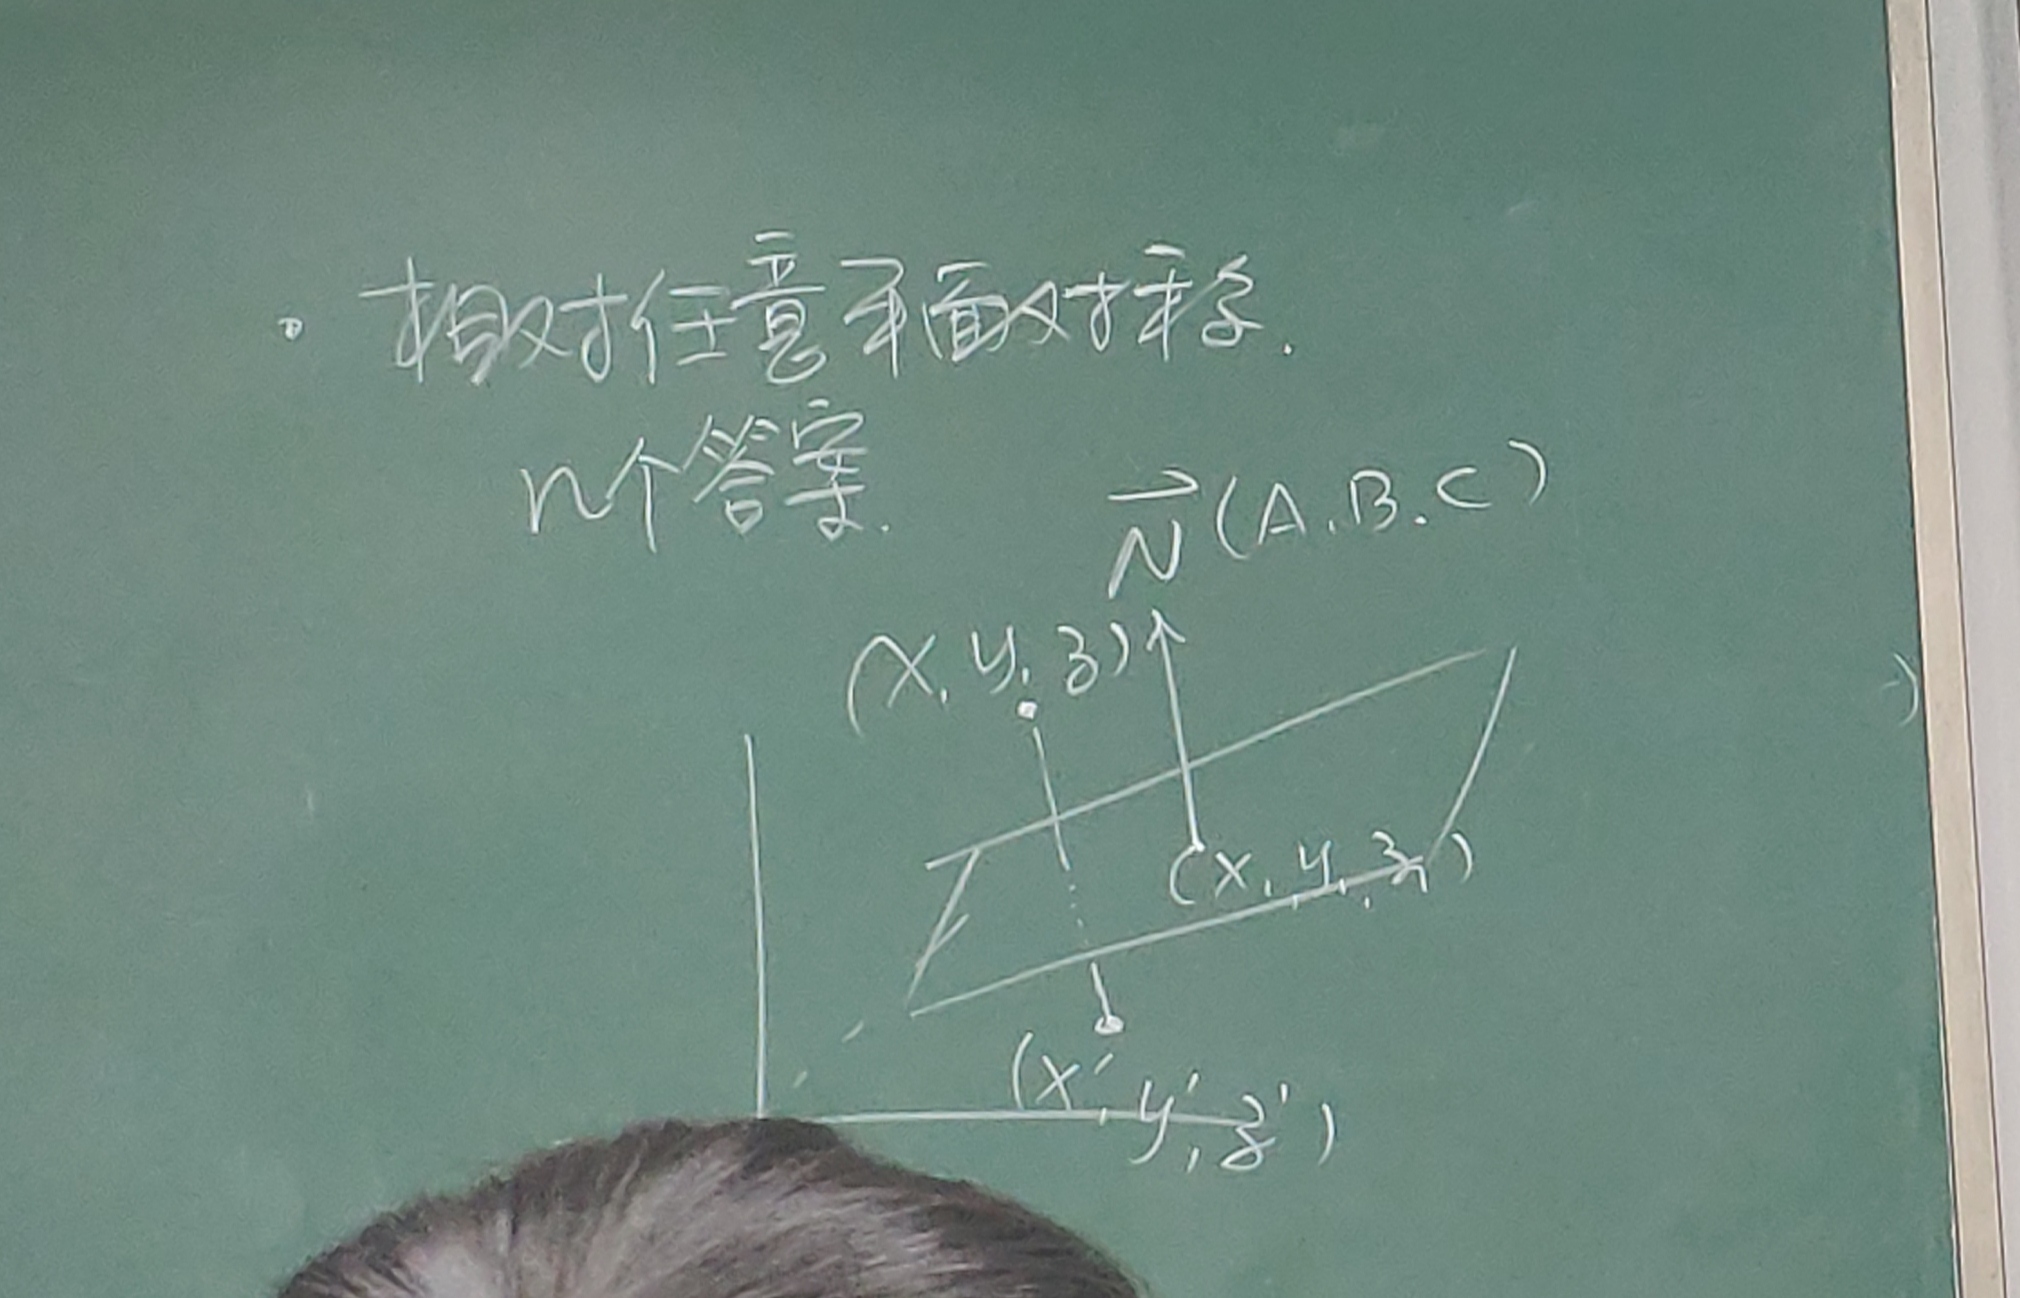 · 相对任意平面对称.
n个答案.
N(A.B.C)
(x,y,z)
(x,y,z)
(x',y',z')